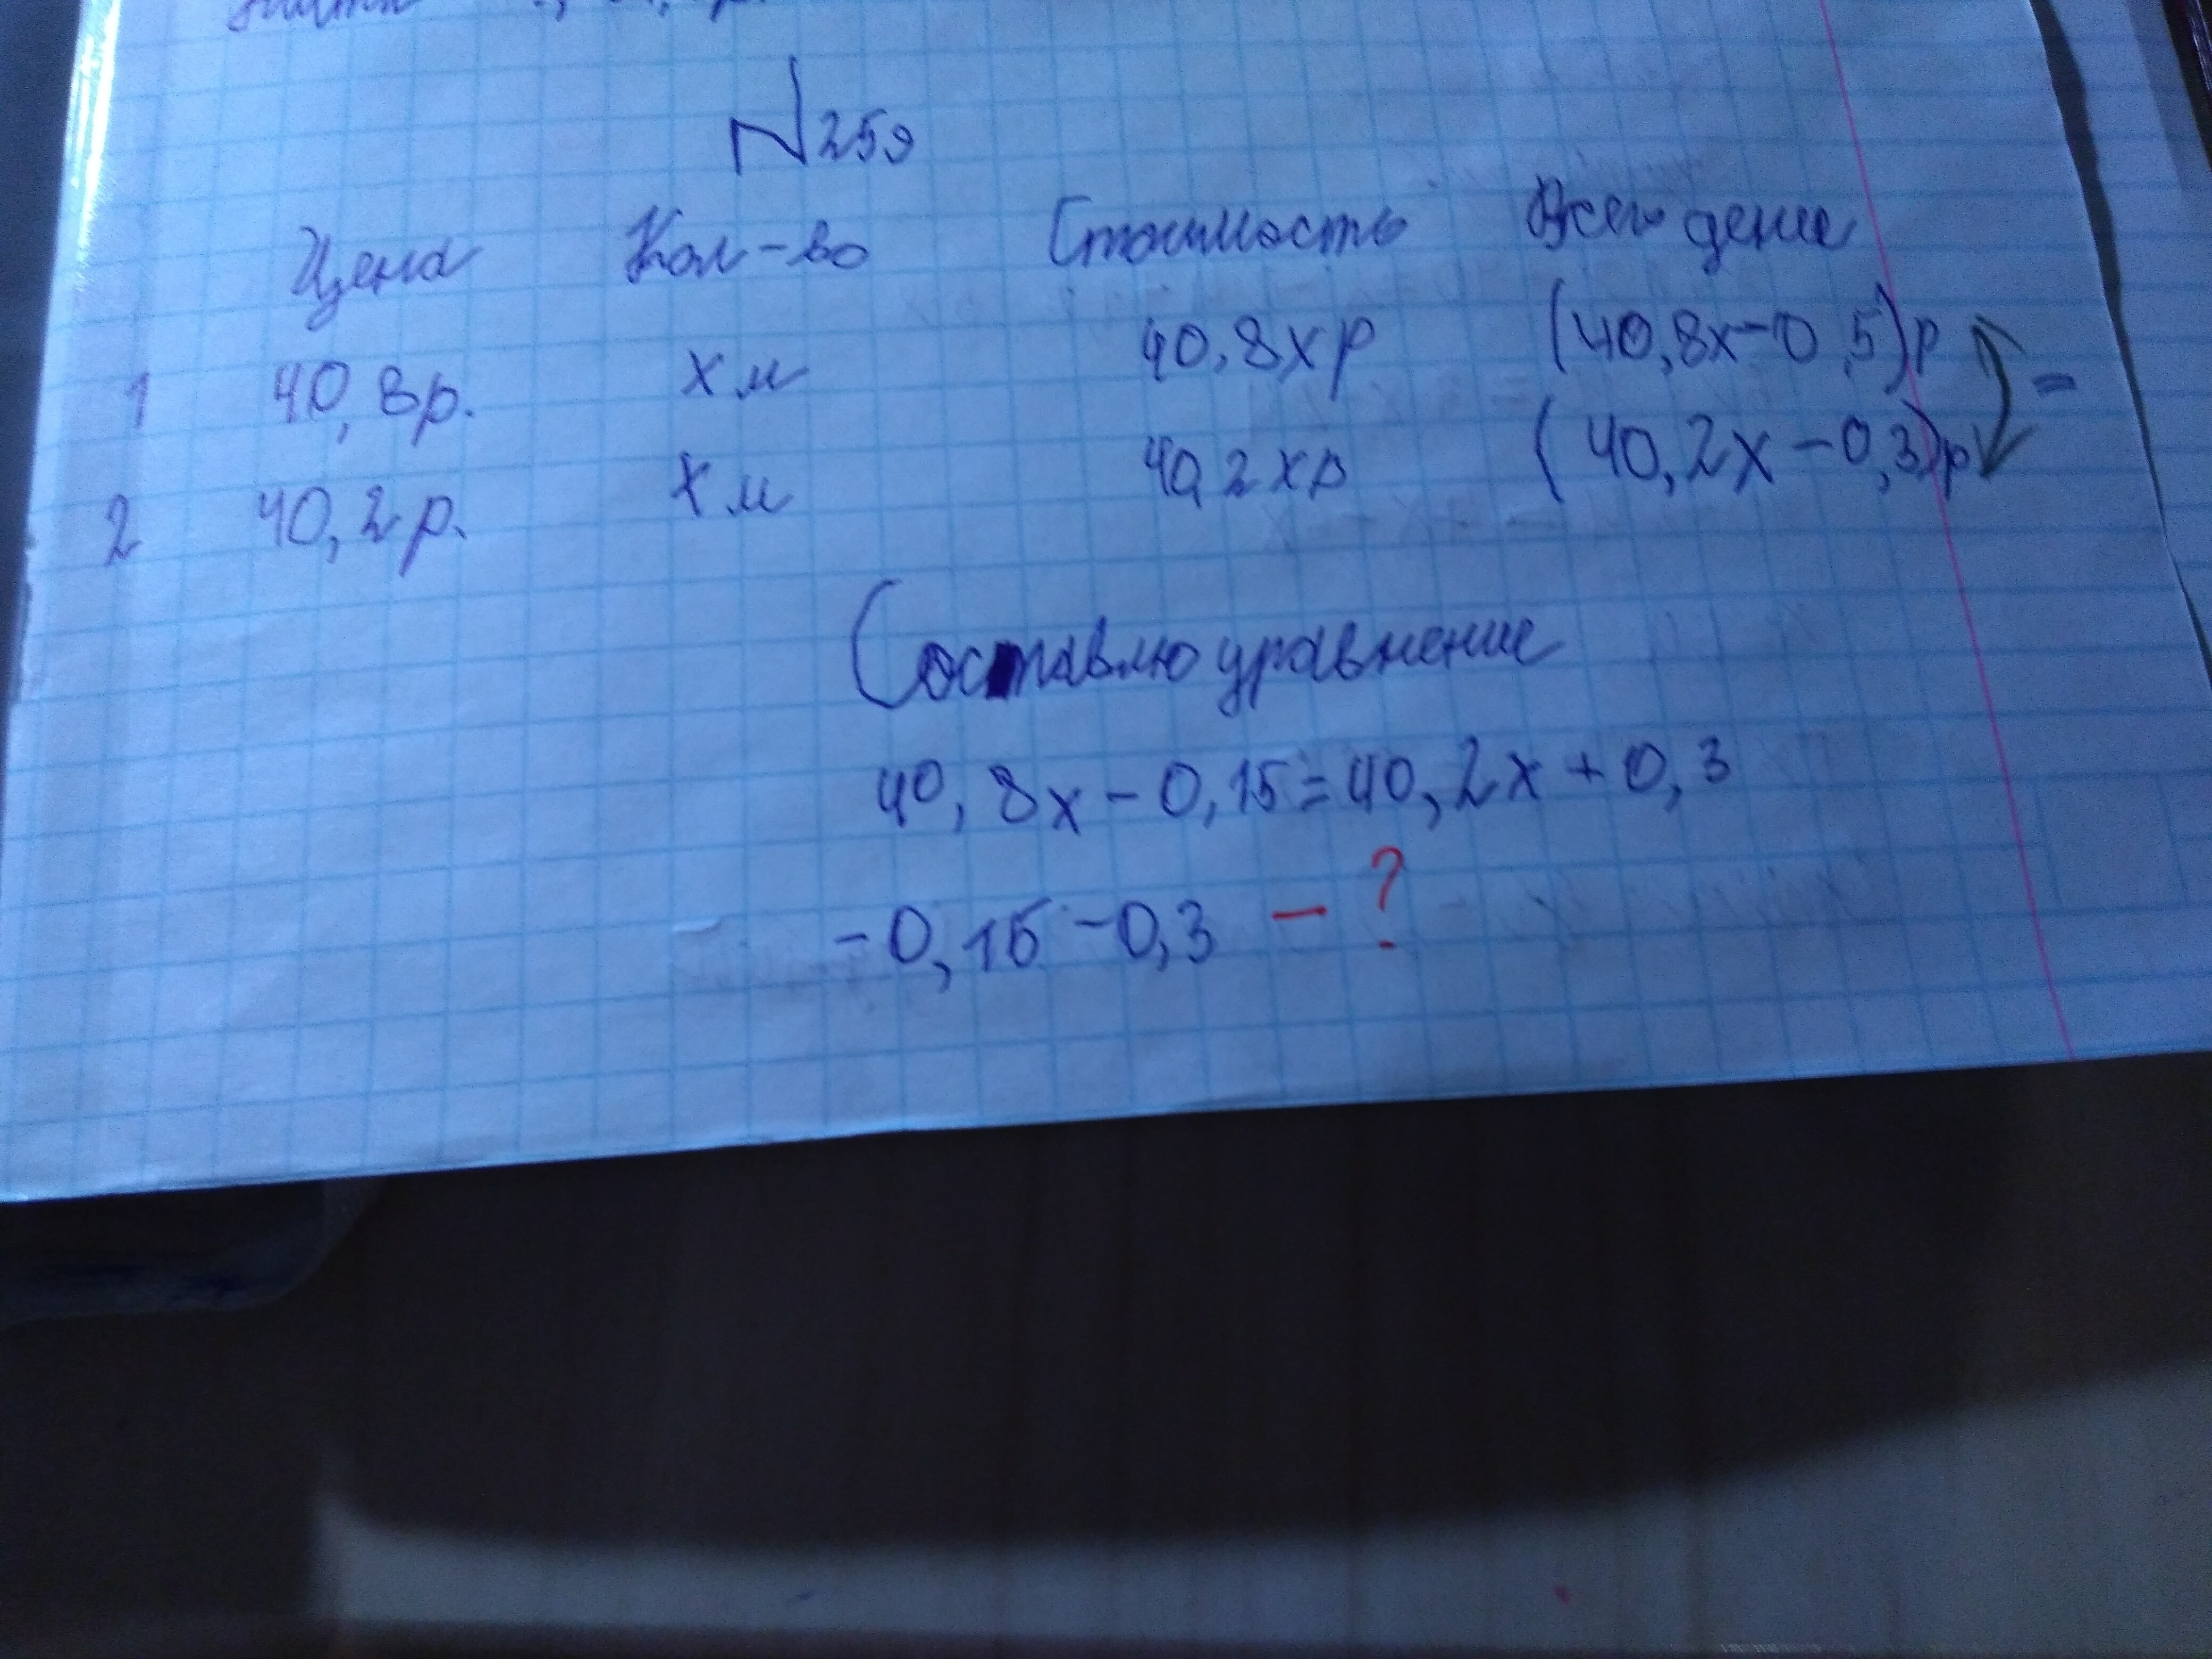 N259
Цена Кол-во Стоимость Всего денег
1 40,8р. х м 40,8хр (40,8х-0,5)р
2 40,2р. х м 40,2хр (40,2х-0,3)р =
Составлю уравнение
40,8х-0,15=40,2х+0,3
-0,15-0,3 - ?